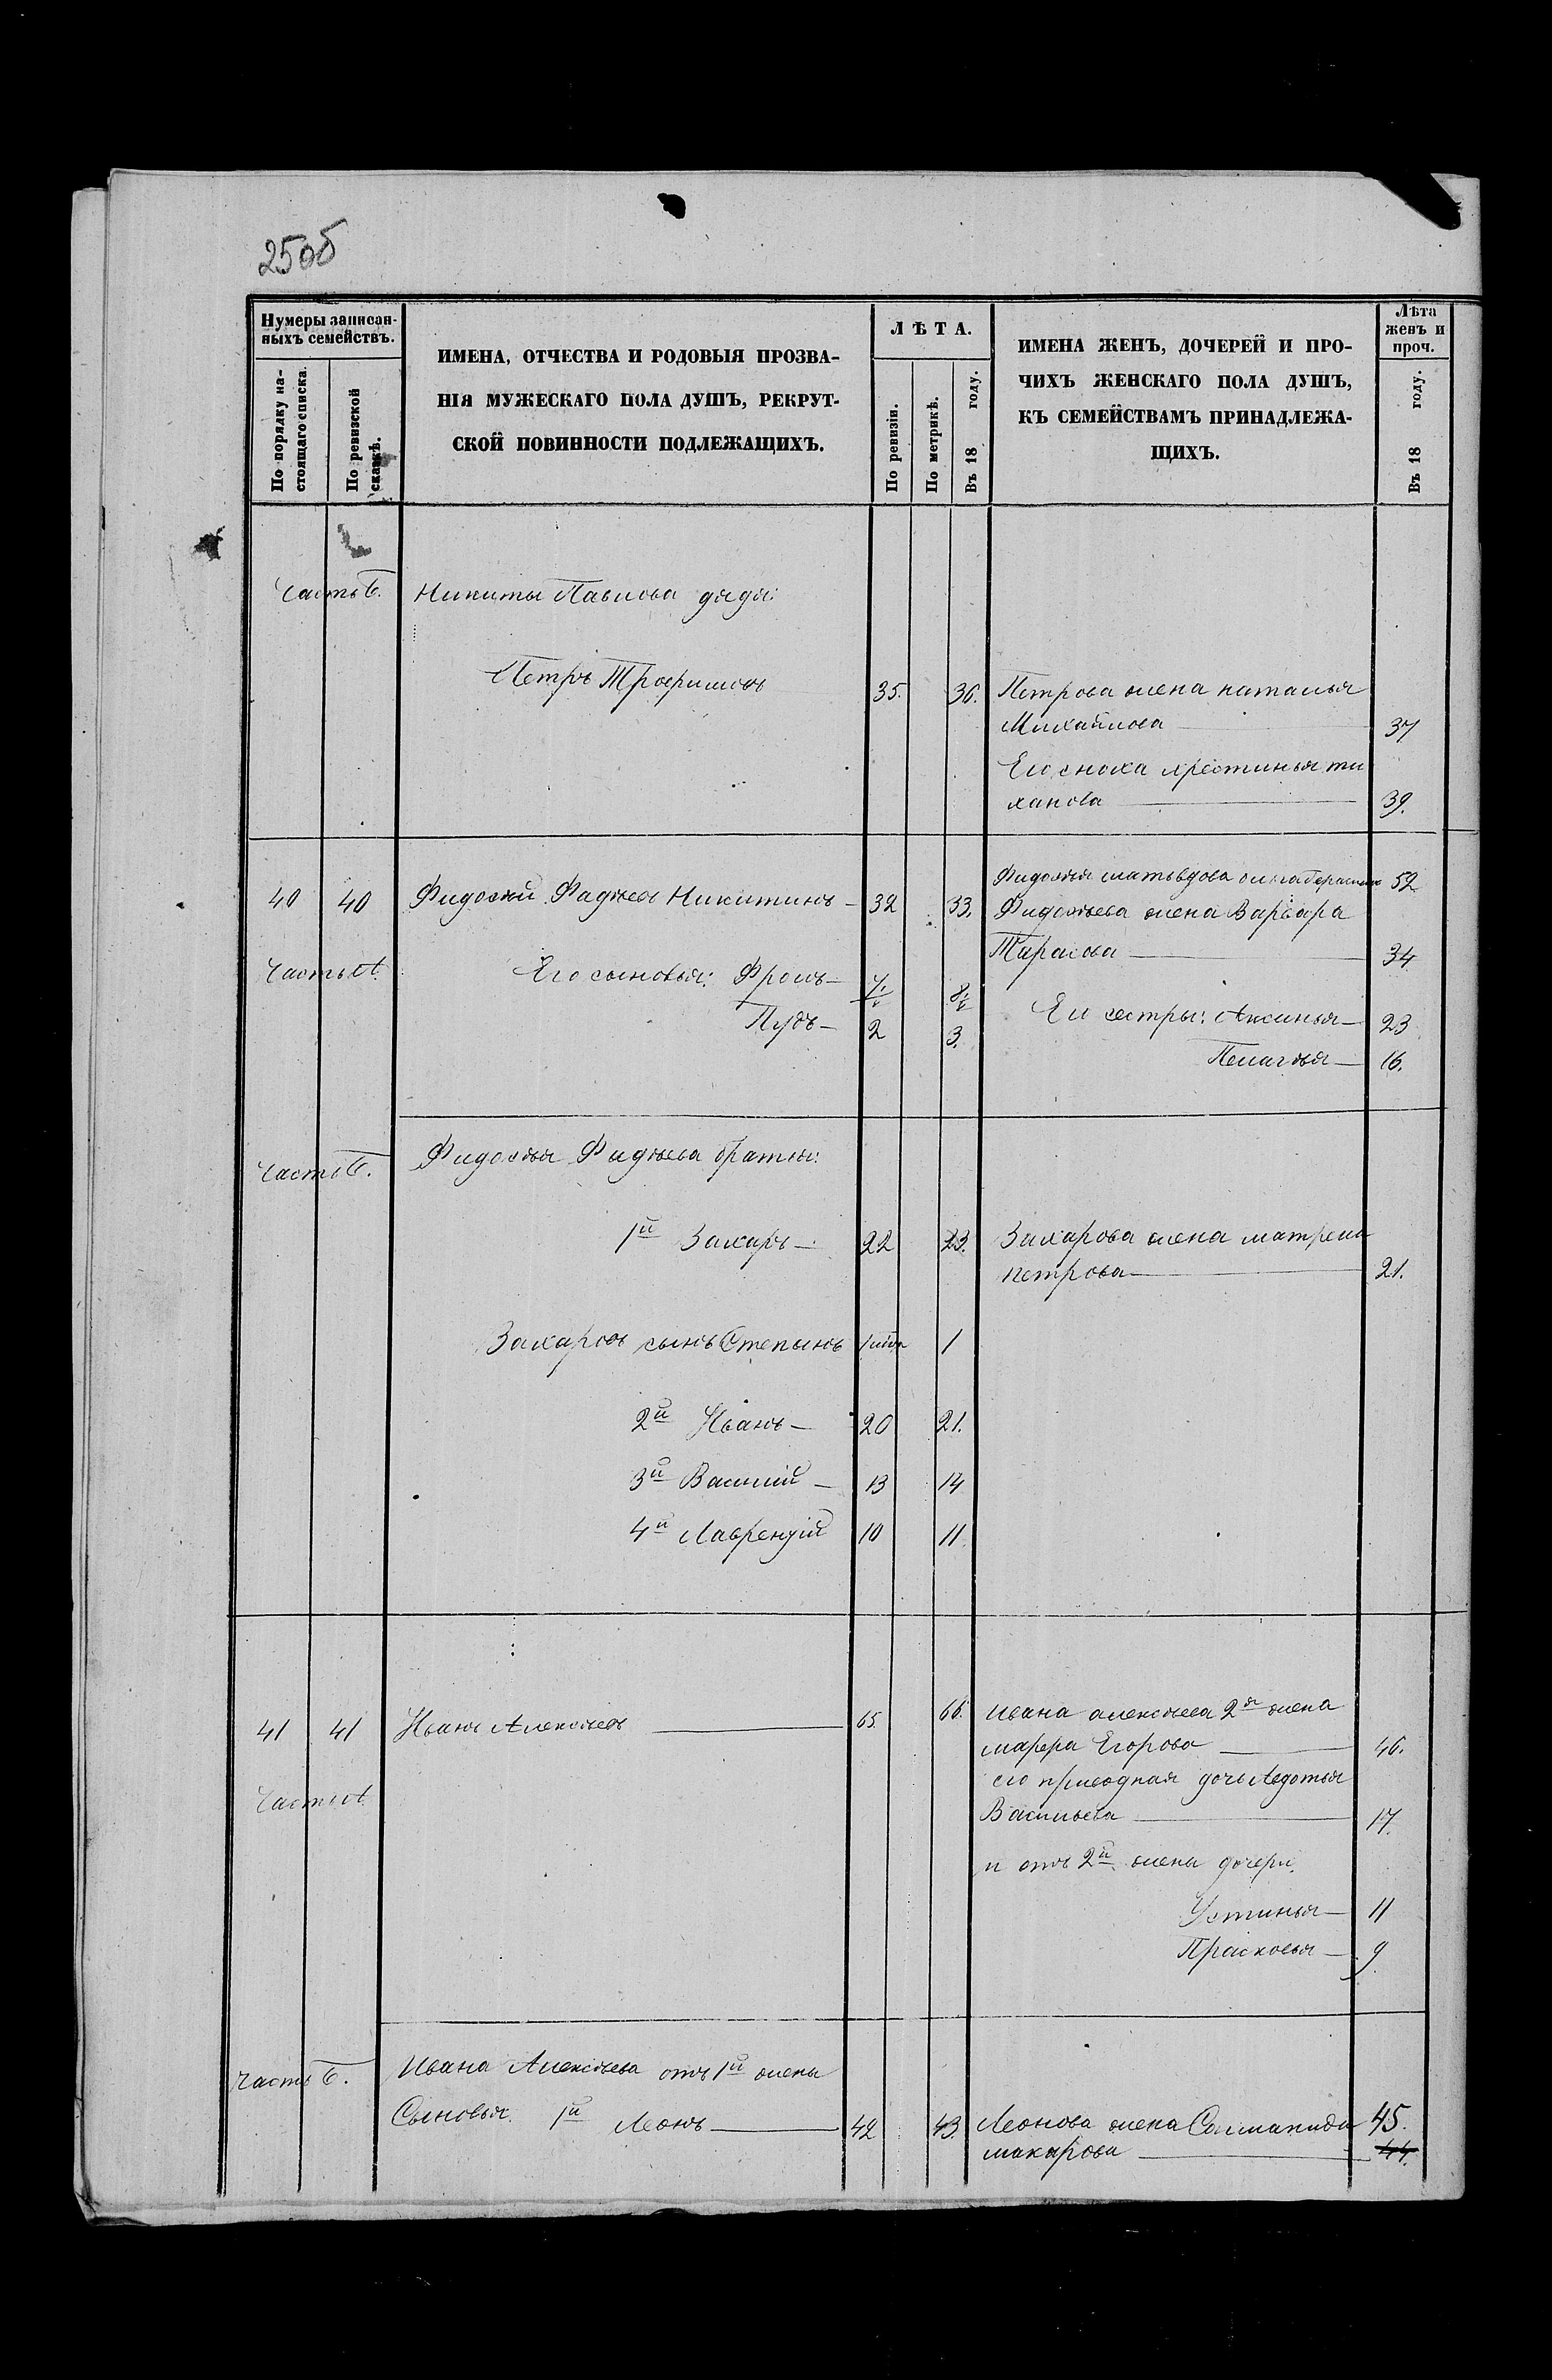 250б
Нумеры записан-
ныхъ семействъ.
По порядку на-
стоящаго списка.
По ревизской
сказкѣ.
ИМЕНА, ОТЧЕСТВА И РОДОВЫЯ ПРОЗВА-
НІЯ МУЖЕСКАГО ПОЛА ДУШЪ, РЕКРУТ-
СКОЙ ПОВИННОСТИ ПОДЛЕЖАЩИХЪ.
ЛѢТА.
По ревизіи.
По метрикѣ.
Въ 18 году.
ИМЕНА ЖЕНЪ, ДОЧЕРЕЙ И ПРО-
ЧИХЪ ЖЕНСКАГО ПОЛА ДУШЪ,
КЪ СЕМЕЙСТВАМЪ ПРИНАДЛЕЖА-
ЩИХЪ.
Лѣта
женъ и
проч.
Въ 18 году.
Часть Б. Никиты Павлова дядя:
Петръ Трофимовъ 35. 36. Петрова жена наталья
Михайлова 37
Его сноха христинья ти
ханова 39.
52
40 40 Фидосѣй Фадѣевъ Никитинъ – 32 33. Фидосѣева жена Варвара
Тарасова 34
Часть А. Его сыновья: Фролъ – 7. 8.
Пудъ – 2 3. Ей сестры: Аксинья – 23
Пелагѣя – 16.
Часть Б. Фидосѣя Фадѣева братья:
1й Захаръ – 22 23. Захарова жена матрена
петрова 21.
Захаровъ сынъ Степанъ 1 1
2й Иванъ – 20 21.
3й Василій – 13 14
4й Лаврентій 10 11
41 41 Иванъ Алексѣевъ 65. 66. Ивана алексѣева 2я жена
марфа Егорова 46.
Часть А. его приводная дочь Авдотья
Васильева 17.
и отъ 2й жены дочери.
Устинья – 11
Прасковья – 9
Часть Б. Ивана Алексѣева отъ 1й жены
Сыновья. 1й Леонъ 42 43. Леонова жена Соломанида 45.
макарова 44.